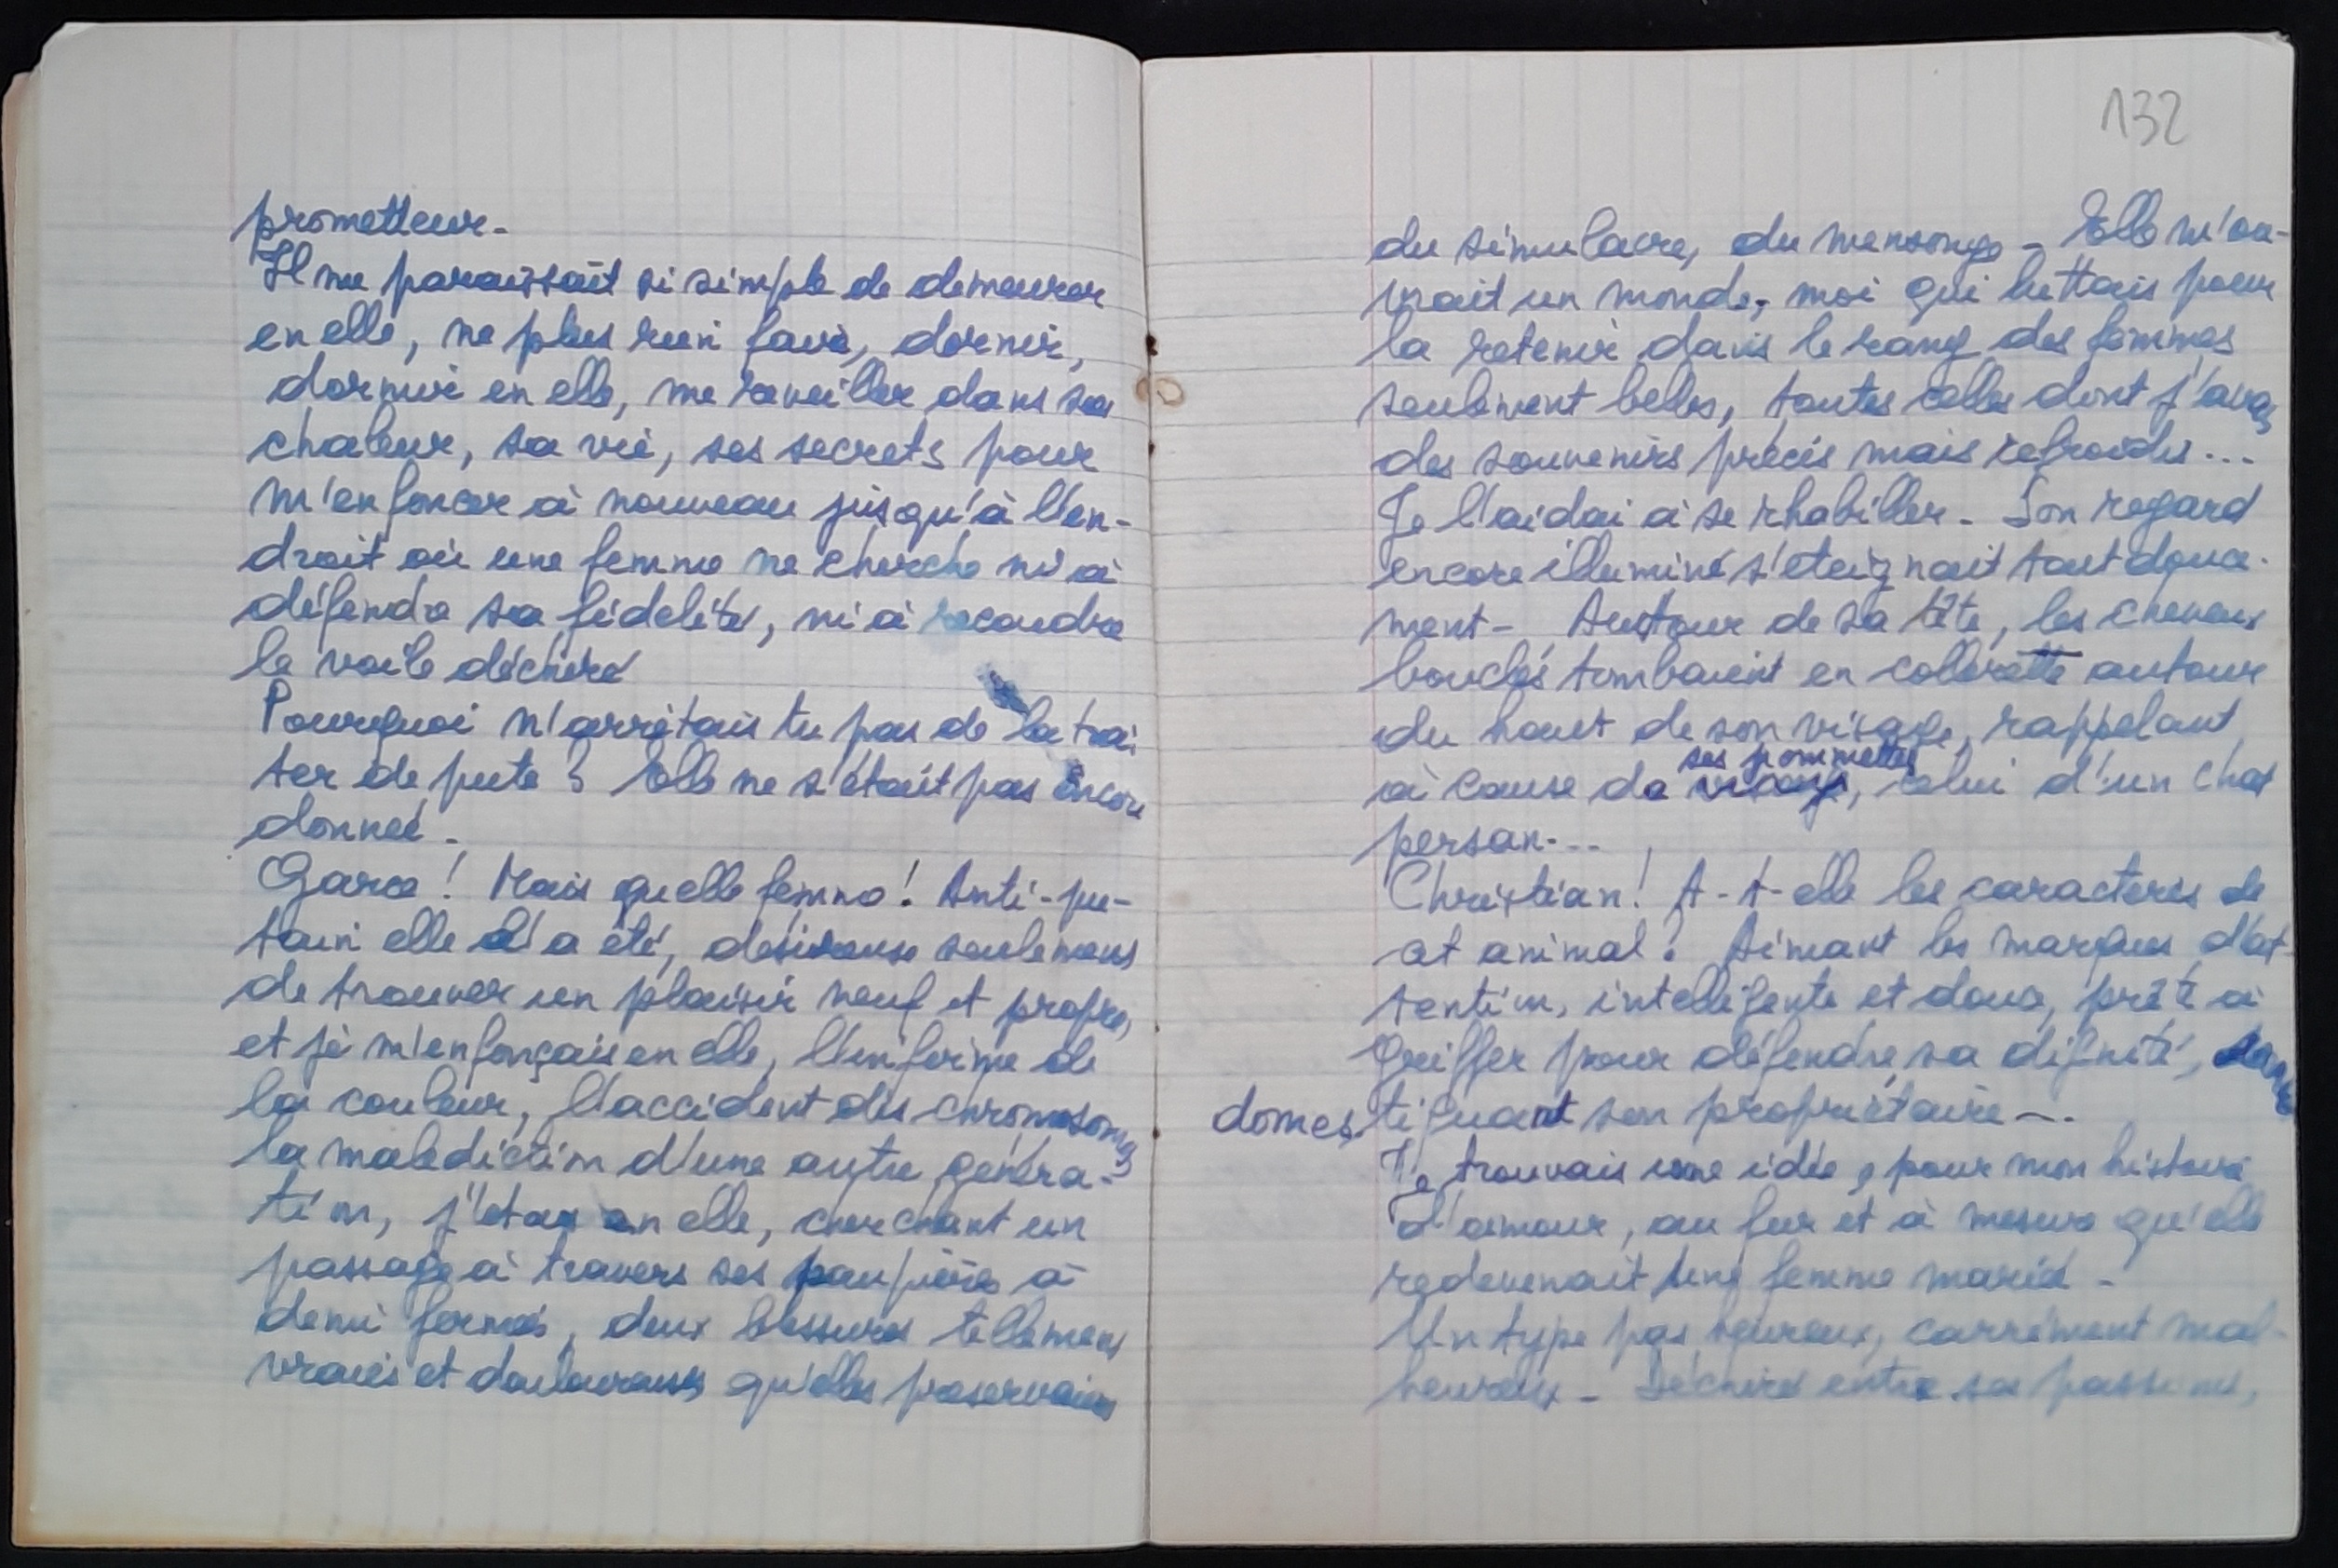 prometteur.
Il me paraissait si simple de demeurer
en elle, ne plus rien faire, dormir,
dormir en elle, me réveiller dans sa
chaleur, sa vie, ses secrets pour
m'enfoncer à nouveau jusqu'à l'en-
droit où une femme ne cherche ni à
défendre sa fidélité, ni à recoudre
le voile déchiré
Pourquoi n'arrêtais tu pas de la trai
ter de pute ? Elle ne s'était pas encore
donnée.
Garce ! Mais quelle femme ! Anti-pu-
tain elle l'a été, désireuse seulement
de trouver un plaisir neuf et propre,
et je m'enfonçais en elle, l'enforme de
la couleur, l'accident des chromosomes
la malediction d'une autre généra-
tion, j'étais en elle, cherchant un
passage à travers ses paupières à
demi fermés, deux blessures tellement
vraies et douloureuses qu'elles préservaient
132
du simulacre, du mensonge - Elle m'ou-
vrait un monde, moi qui luttais pour
la retenir dans le rang des femmes
seulement belles, toutes celles dont j'avais
des souvenirs précis mais refroidis...
Je l'aidai à se rhabiller - Son regard
encore illuminé s'éteignait tout douce-
ment - Autour de sa tête, les cheveux
bouclés tombaient en collerette autour
du haut de son visage, rappelant
ses pommettes
à cause de visage, celui d'un chat
persan...
Christian ! A-t-elle les caractères de
cet animal ? Aimant les marques d'at-
tention, intelligente et douce, prête à
griffer pour défendre sa dignité,
domestiquant son propriétaire -.
Je trouvais une idée, pour mon histoire
d'amour, au fur et à mesure qu'elle
redevenait une femme mariée -
Un type pas heureux, carrément mal-
heureux - Déchiré entre ses passions,